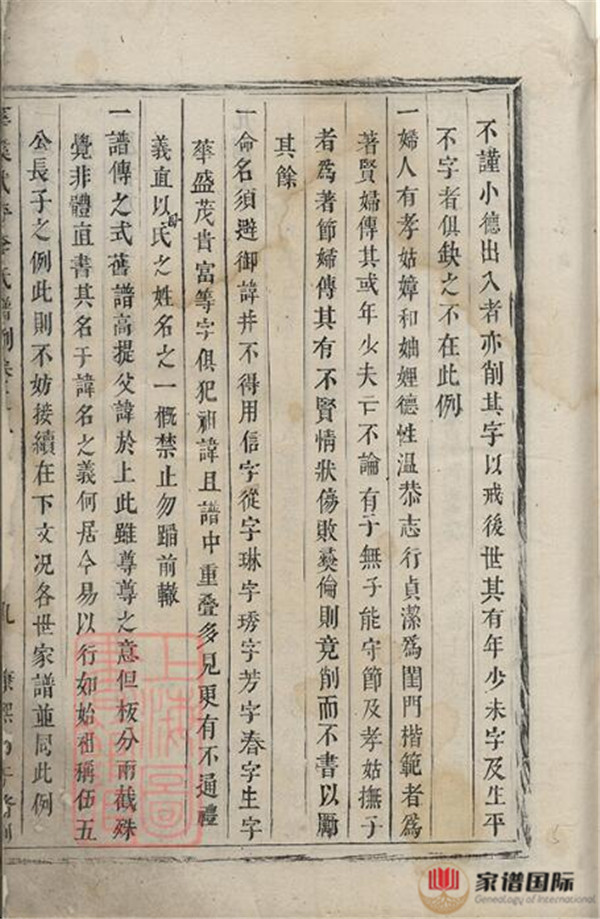 不謹小德出入者亦削其字以戒後世其有年少未字及生平
不字者俱缺之不在此例
一婦人有孝姑嫜和妯娌德性温恭志行貞潔爲閨門楷範者爲
著賢婦傳其或年少夫亡不論有子無子能守節及孝姑撫子
者爲著節婦傳其有不賢情狀傷敗彝倫則竟削而不書以勵
其餘
一命名須避御諱并不得用信字從字琳字琇字芳字春字生字
華盛茂貴富等字俱犯祖諱且譜中重叠多見更有不通禮
義直以氏之姓名之一慨禁止勿蹈前轍
一譜傳之式舊譜高提父諱於上此雖尊尊之意但板分兩截殊
覺非體直書其名于諱名之義何居今易以行如始祖稱伍五
公長子之例此則不妨接續在下文况各世家譜並同此例
氏譜例
九
上海圖
家谱国际
Genealogy of International